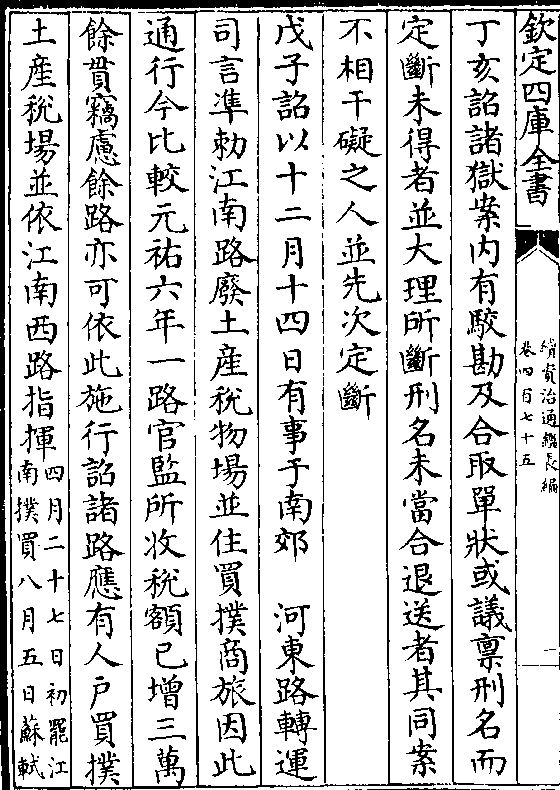 欽定四庫全書
續資治通鑑長編
卷四百七十五
一
丁亥詔諸獄案内有駮勘及合取單狀或議禀刑名而
定斷未得者並大理所斷刑名未當合退送者其同案
不相干礙之人並先次定斷
戊子詔以十二月十四日有事于南郊　河東路轉運
司言準勅江南路廢土産稅物場並住買撲商旅因此
通行今比較元祐六年一路官監所收稅額已增三萬
餘貫竊慮餘路亦可依此施行詔諸路應有人户買撲
土産稅場並依江南西路指揮四月二十七日初罷江
南撲買八月五日蘇軾